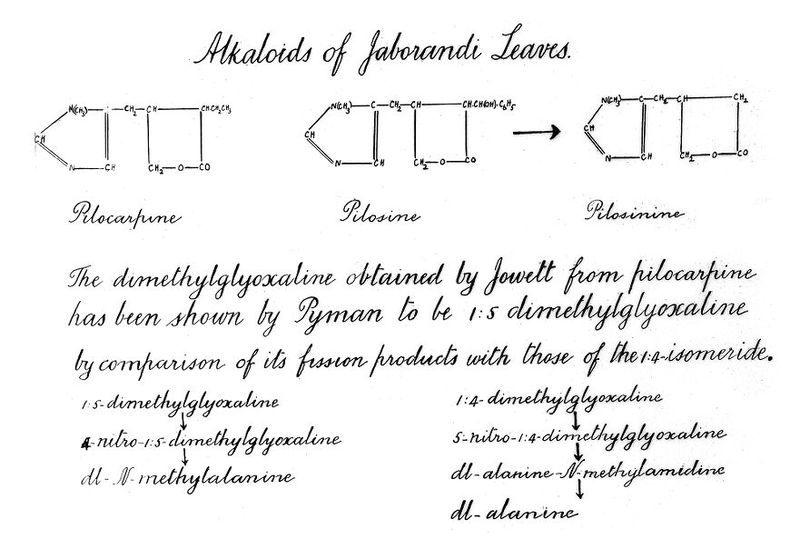 Alkaloids of Jaborandi Leaves.
N(CH₃) CH₂ CH CHCH₂CH₃
CH
N CH CH₂ O CO
N(CH₃) C CH₂ CH CH·CH(OH)·C₆H₅
CH
N CH CH₂ O CO
N(CH₃) C CH₂ CH CH₂
CH
N CH CH₂ O CO
Pilocarpine Pilosine Pilosinine
The dimethylglyoxaline obtained by Jowett from pilocarpine
has been shown by Pyman to be 1:5 dimethylglyoxaline
by comparison of its fission products with those of the 1:4-isomeride.
1:5-dimethylglyoxaline
4-nitro-1:5-dimethylglyoxaline
dl-N-methylalanine
1:4-dimethylglyoxaline
5-nitro-1:4-dimethylglyoxaline
dl-alanine-N-methylamidine
dl-alanine